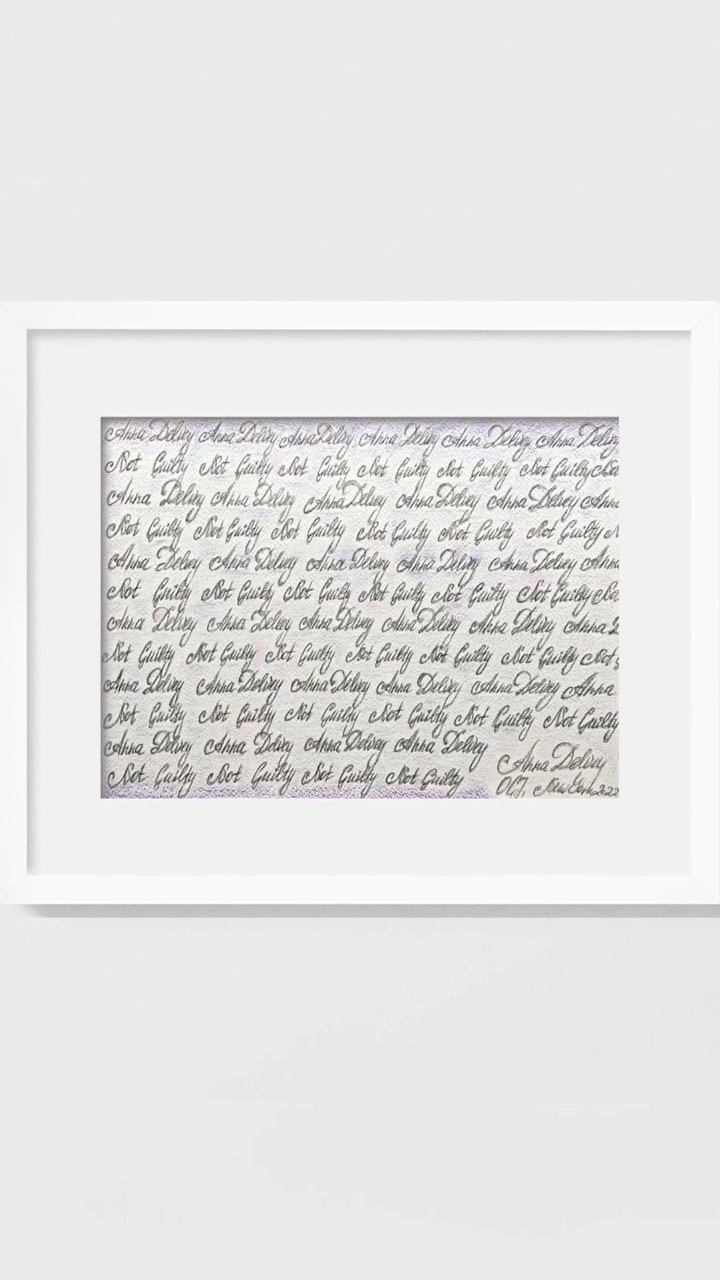 Anna Delvey Anna Delvey Anna Delvey Anna Delvey Anna Delvey Anna Delvey
Not Guilty Not Guilty Not Guilty Not Guilty Not Guilty Not Guilty
Anna Delvey Anna Delvey Anna Delvey Anna Delvey Anna Delvey Anna
Not Guilty Not Guilty Not Guilty Not Guilty Not Guilty Not Guilty
Anna Delvey Anna Delvey Anna Delvey Anna Delvey Anna Delvey Anna
Not Guilty Not Guilty Not Guilty Not Guilty Not Guilty Not Guilty
Anna Delvey Anna Delvey Anna Delvey Anna Delvey Anna Delvey Anna
Not Guilty Not Guilty Not Guilty Not Guilty Not Guilty Not Guilty Not
Anna Delvey Anna Delvey Anna Delvey Anna Delvey Anna Delvey Anna
Not Guilty Not Guilty Not Guilty Not Guilty Not Guilty Not Guilty
Anna Delvey Anna Delvey Anna Delvey Anna Delvey
Not Guilty Not Guilty Not Guilty Not Guilty
Anna Delvey
OCT, New York 2022